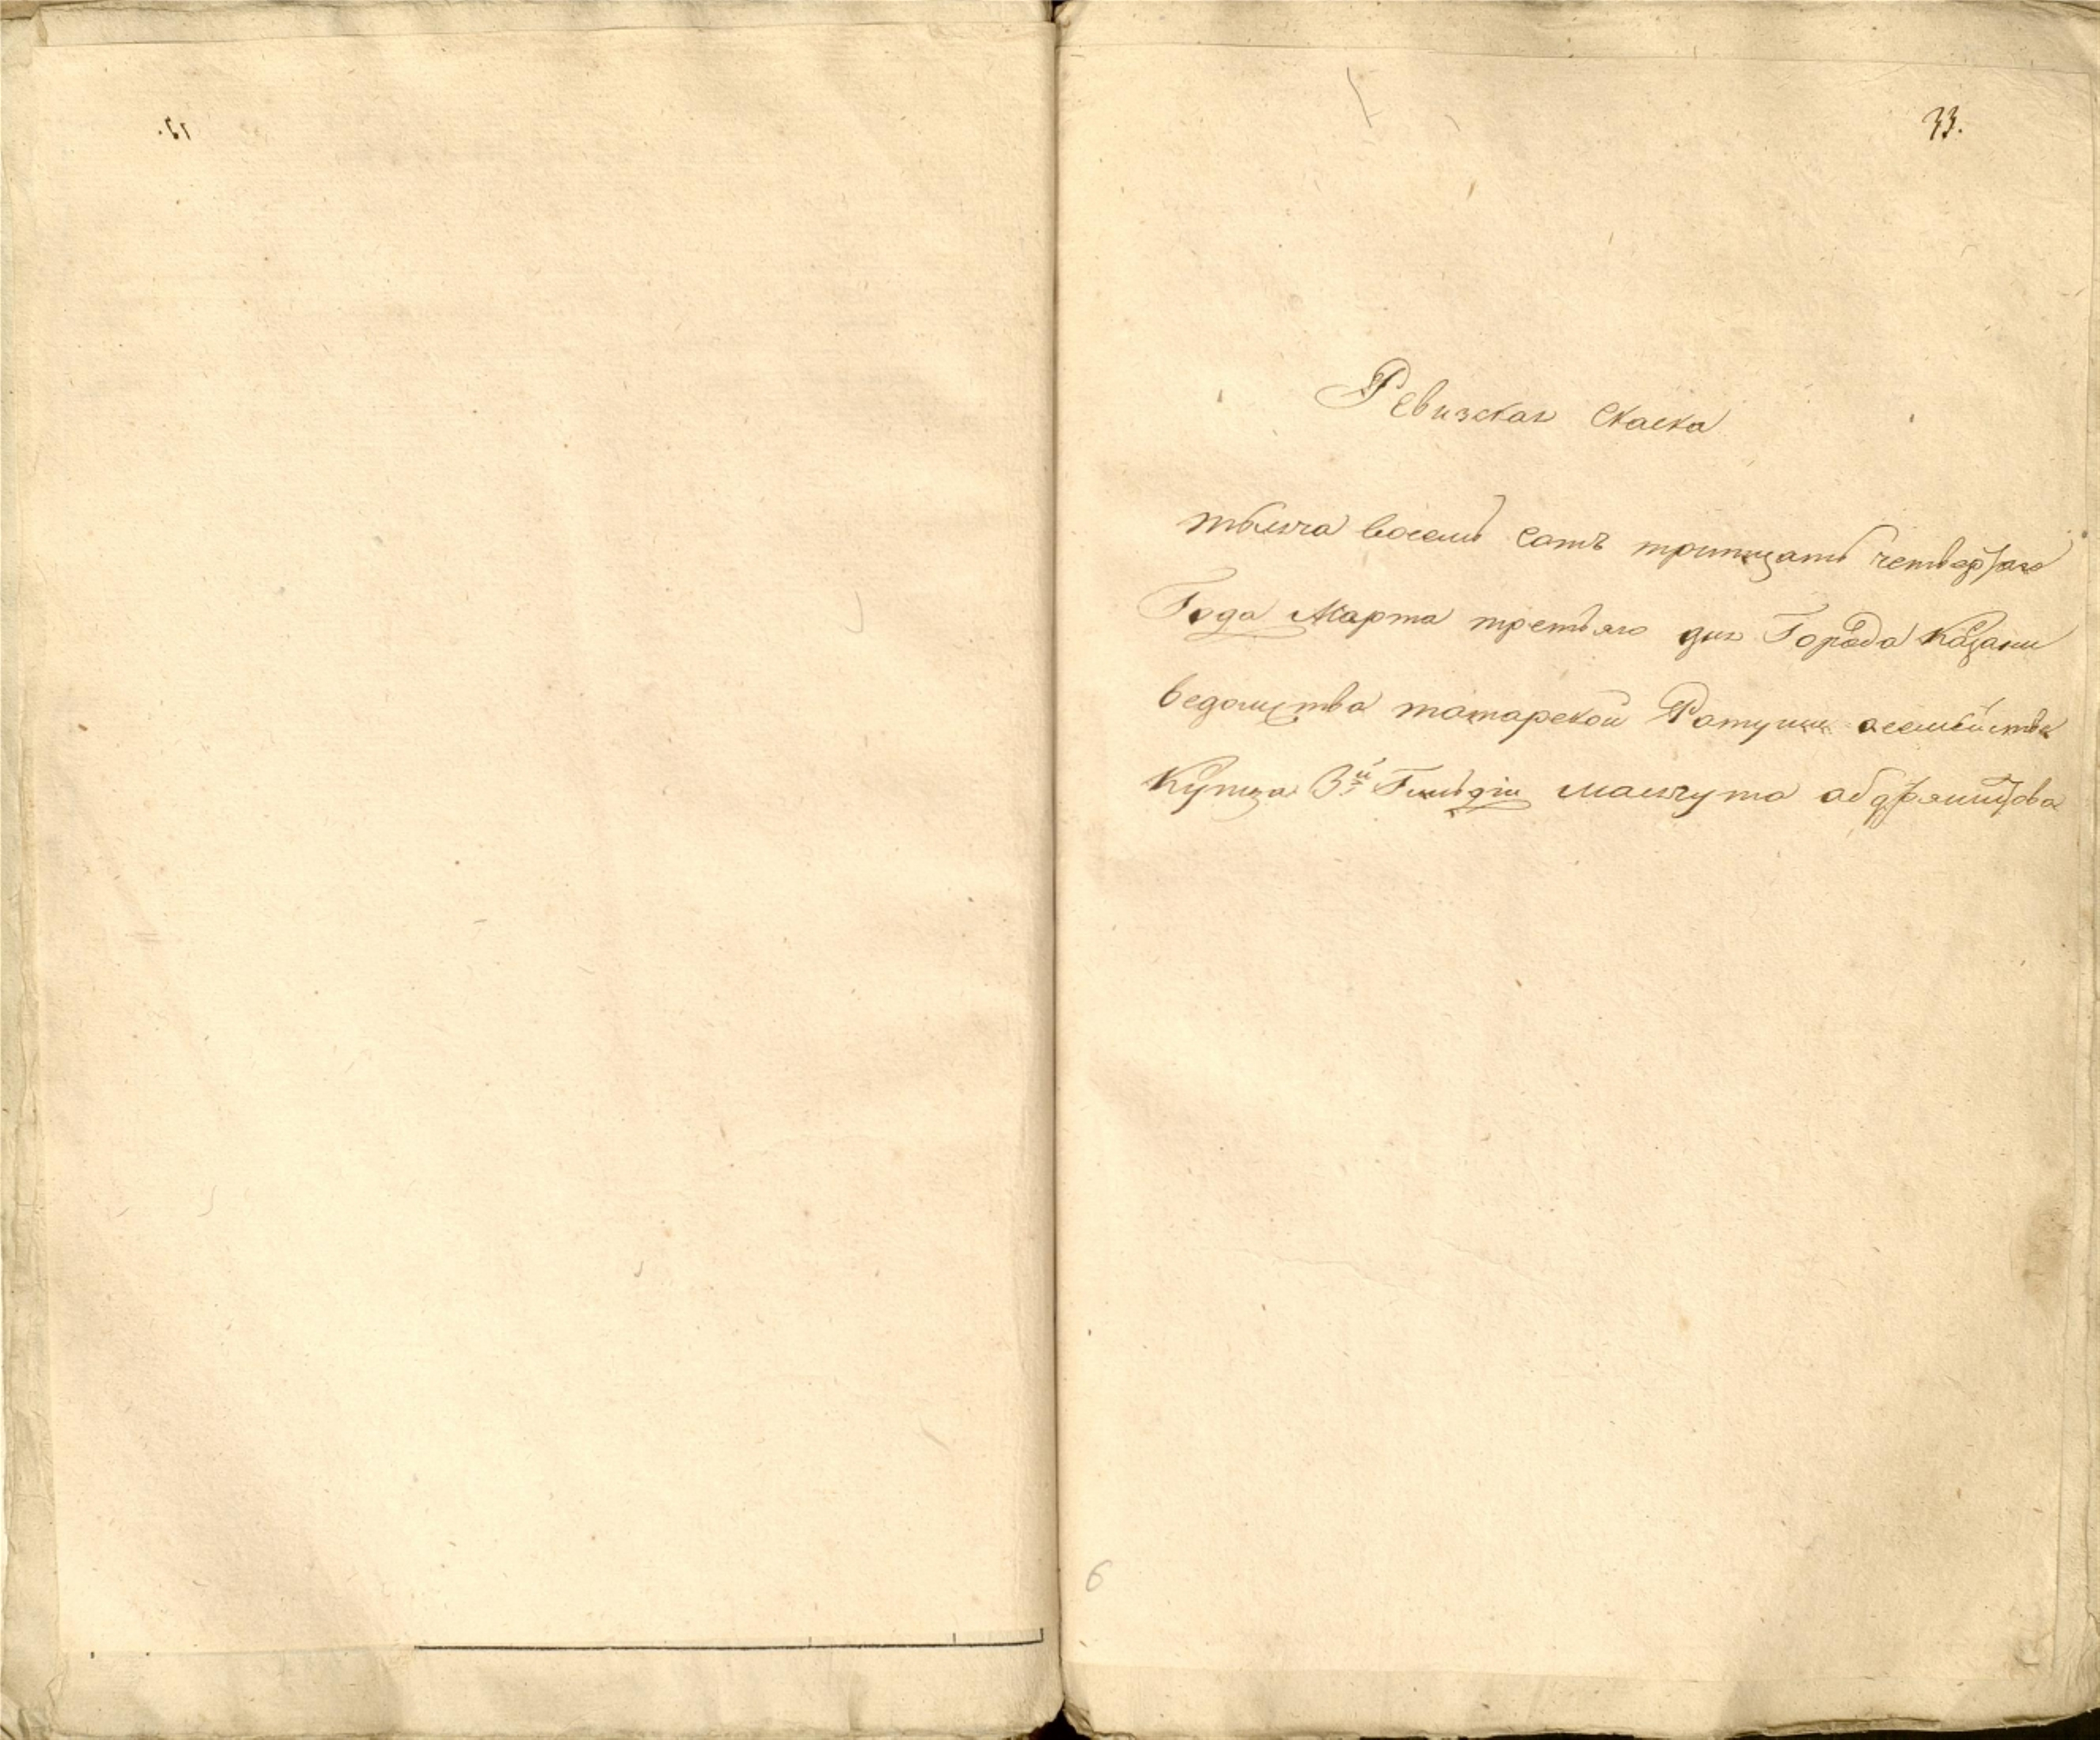 33.
Ревизская Скаска
тысяча восемь Сотъ тритцать четвертаго
Года Марта третьяго дня Города Казани
ведомства татарской Ратуши осемействе
Купца 3й Гильдіи масягута
6